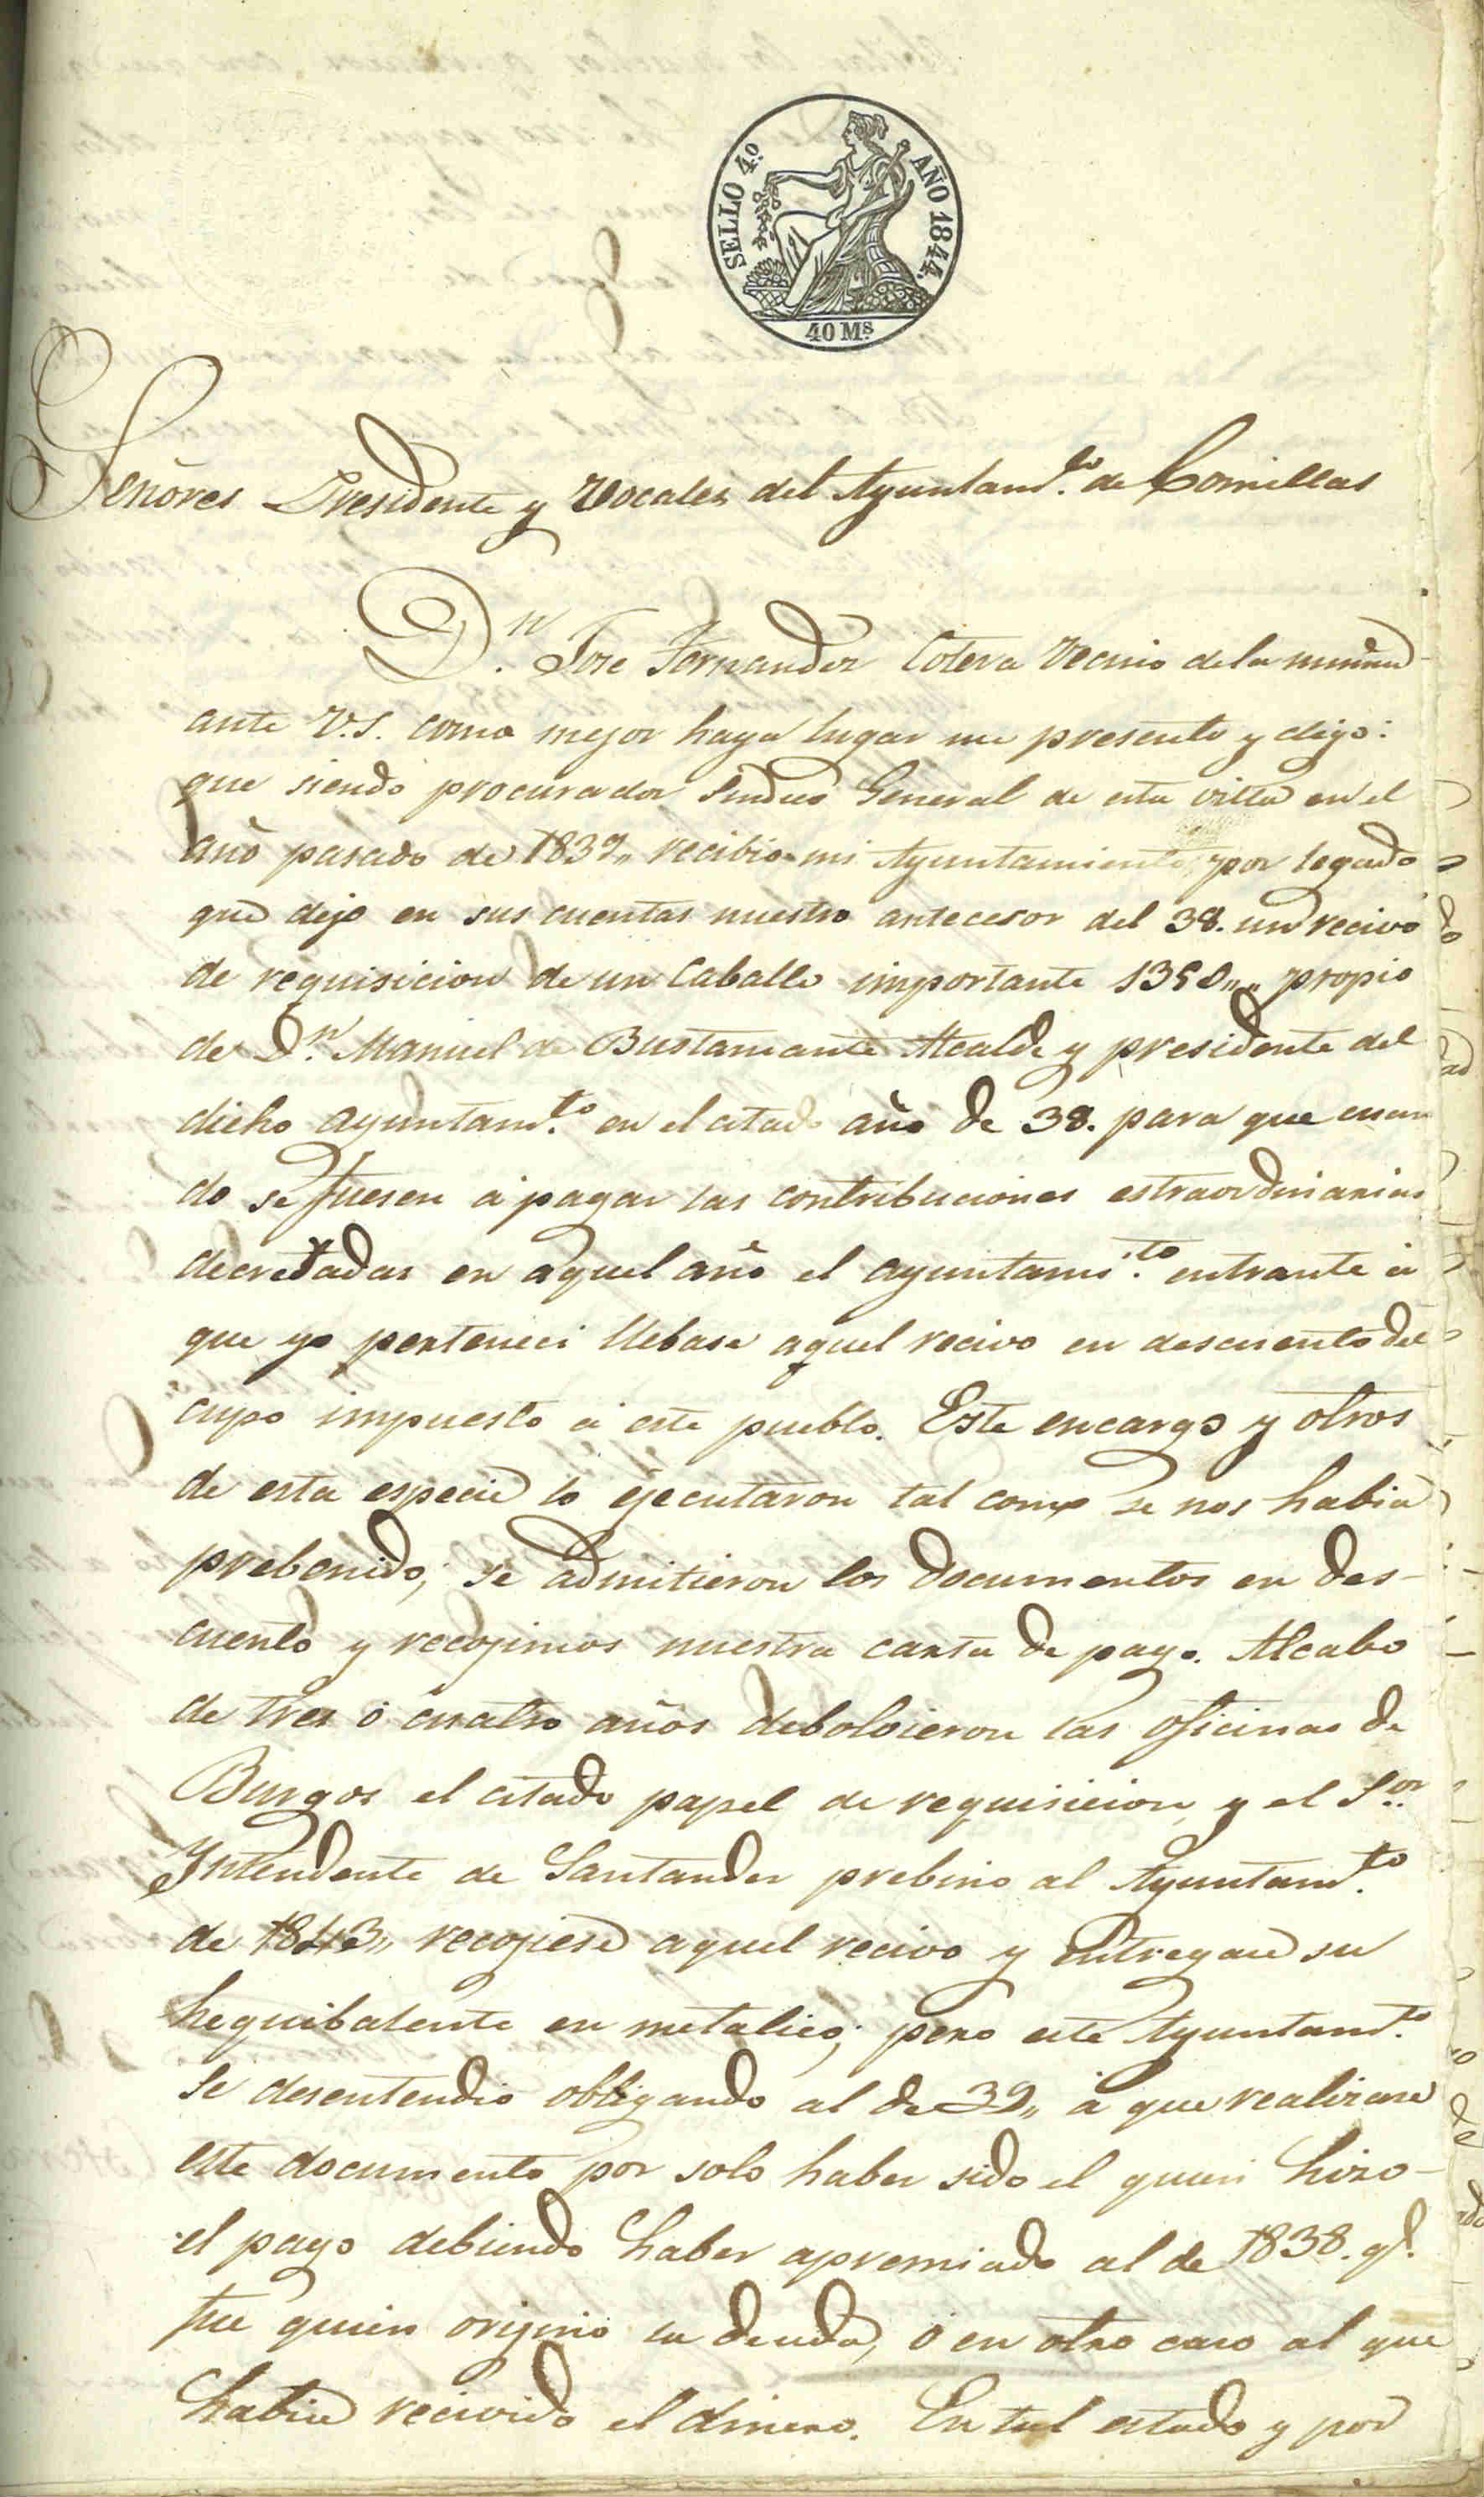 SELLO 4.º AÑO 1844.
40 Ms
Señores Presidente y Vocales del Ayuntam.to de Comillas
D.n Jose Fernandez Cotera Vecino de la misma
ante V.S. como mejor haya lugar me presento y digo:
que siendo procurador Sindico General de esta villa en el
año pasado de 1839,, recibio mi Ayuntamiento por legado
que dejo en sus cuentas nuestro antecesor del 38. un recivo
de requisicion de un Caballo importante 1350,,,, propio
de D.n Manuel de Bustamante Alcalde y presidente del
dicho ayuntam.to en el citado año de 38. para que cuan
do se fuesen á pagar las contribuciones estraordinarias
decretadas en aquel año el ayuntami.to entrante á
que yo perteneci llebase aquel recivo en descuento del
cupo impuesto á este pueblo. Este encargo y otros
de esta especie lo ejecutaron tal como se nos habia
prebenido; se admitieron los documentos en des-
cuento y recojimos nuestra carta de pago. Al cabo
de tres ó cuatro años debolvieron las oficinas de
Burgos el citado papel de requisicion y el S.or
Yntendente de Santander prebino al Ayuntam.to
de 1843,, recojiese aquel recivo y entregase su
hequibalente en metalico; pero este Ayuntam.to
se desentendio obligando al de 39,, á que realizase
este documento por solo haber sido el quien hizo-
el pago debiendo haber apremiado al de 1838. q.e
fue quien origino la deuda, ó en otro caso al que
habia recivido el dinero. En tal estado y por